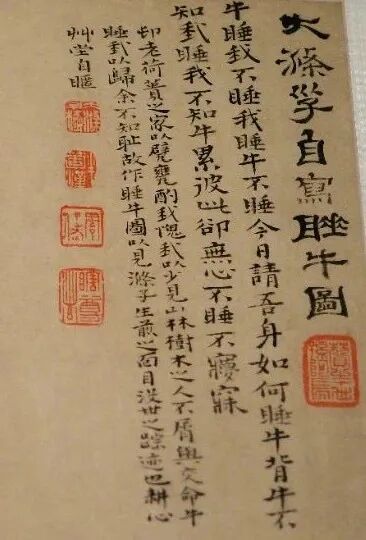 大滌子自寫睡牛圖
牛睡我不睡我睡牛不睡今日請吾身如何睡牛背牛不
知我睡我不知牛累彼此卻無心不睡不㝱寐
邨老荷蕢之家以甓甕酌我愧我以少見山林樹木之人不屑與交命牛
睡我以歸余不知恥故作睡牛圖以見滌子生前之面目沒世之踪迹也耕心
艸堂自